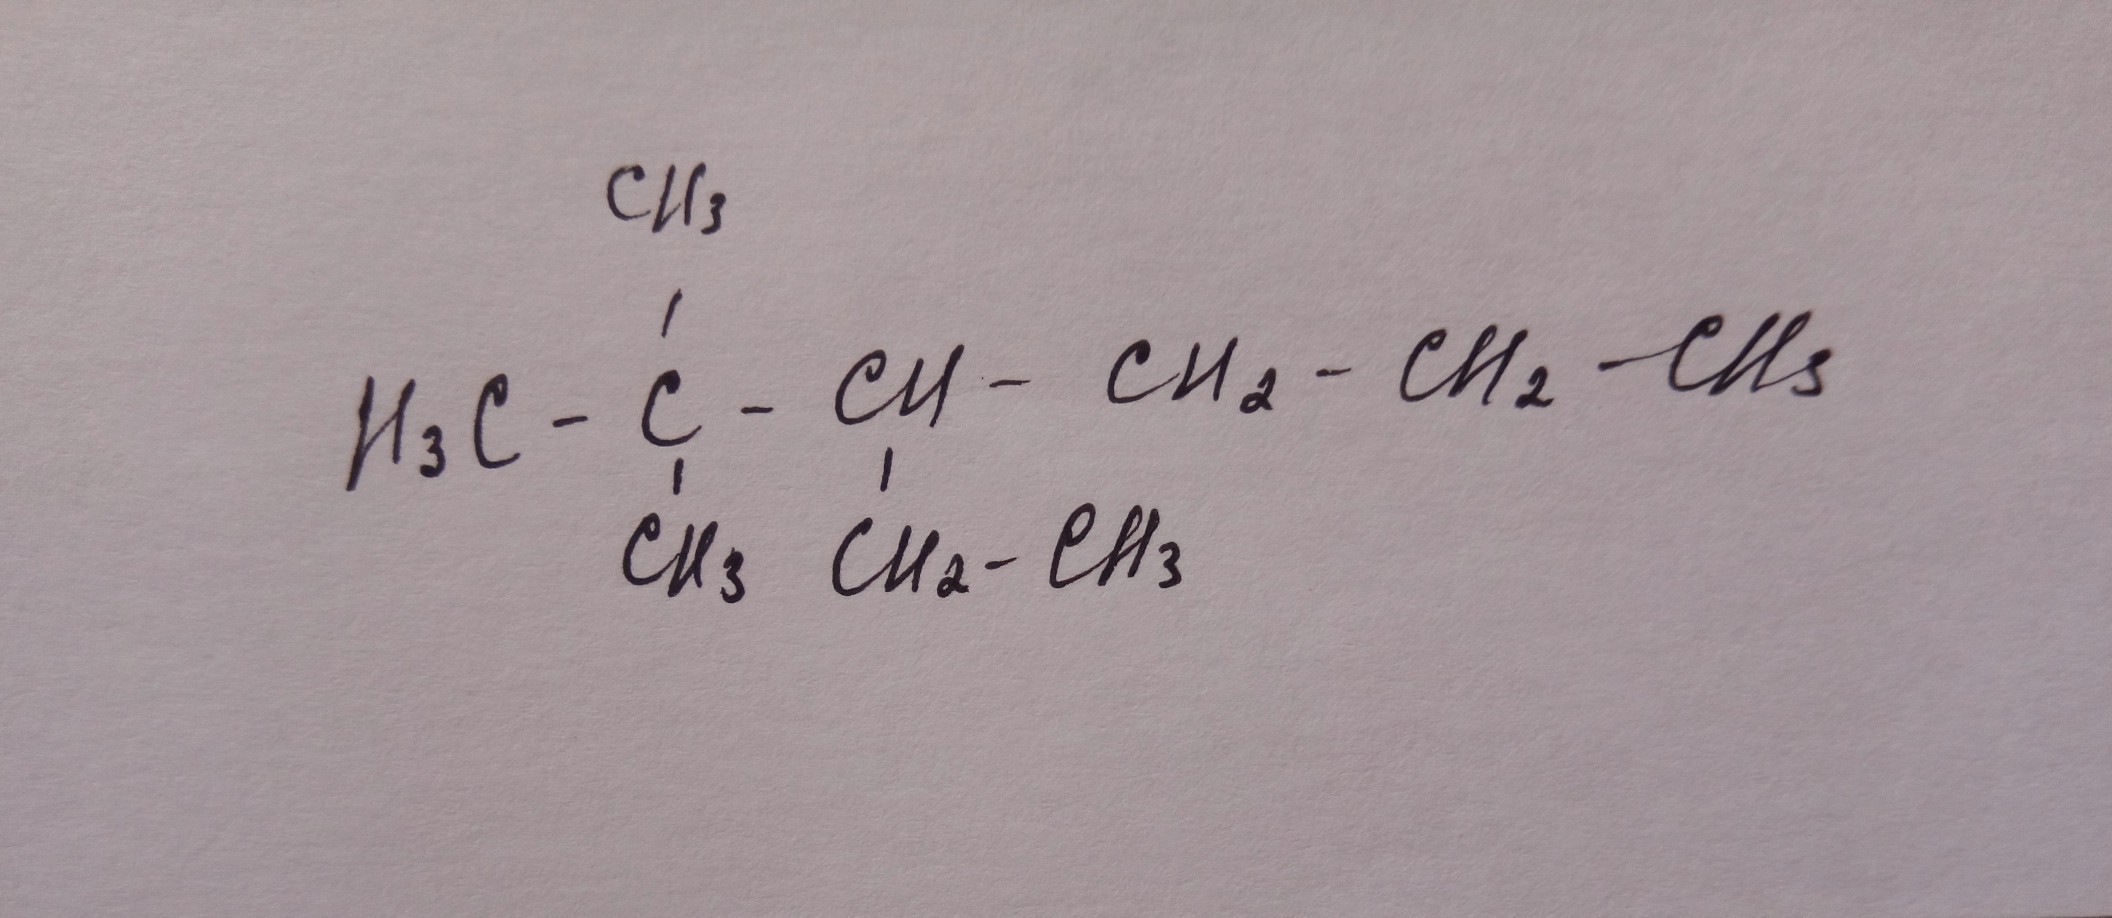 CH3
H3C - C - CH - CH2 - CH2 - CH3
CH3 CH2 - CH3